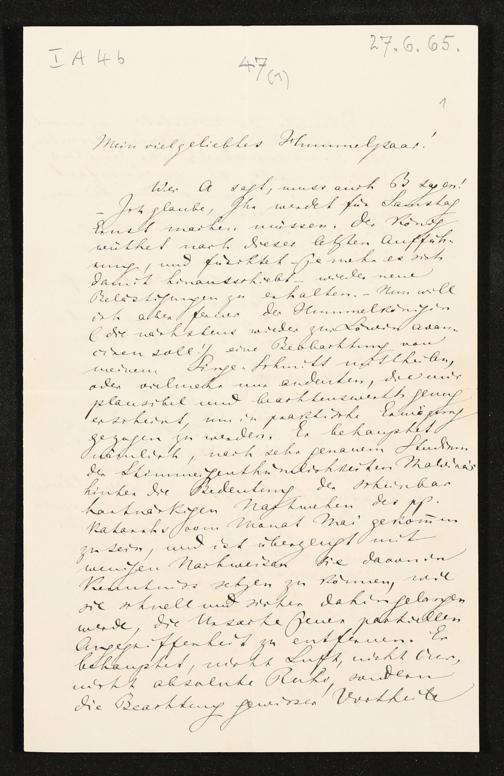 I A 4 b
47 (1)
27.6.65.
1
Mein vielgeliebtes Hummelpaar!
Wer A sagt, muss auch B sagen!
– Ich glaube, Ihr werdet für Samstag
Ernst machen müssen. Der König
wüthet nach dieser letzten Auffüh-
rung, und fürchtet – je mehr es sich
damit hinausschiebt – wieder neue
Belästigungen zu erhalten. – Nun will
ich aber ferner der Hummelkönigin
(die nächstens wieder zur Löwin avan-
ciren soll!) eine Beobachtung von
meinem Singe-Schmitt mittheilen,
oder vielmehr nur andeuten, die mir
plausibel und beachtenswerth genug
erscheint, um in praktische Erwägung
gezogen zu werden. Er behauptet
nämlich, nach sehr genauem Studium
der Stimmeigenthümlichkeiten Malvina's
hinter die Bedeutung der scheinbar
hartnäckigen Nachwehen des pp.
Katarrhs vom Monat Mai gekommen
zu sein, und ist überzeugt mit
wenigen Nachweisen Sie davon in
Kenntniss setzen zu können, wie
sie schnell und sicher dahin gelangen
werde, die Ursache jener partiellen
Angegriffenheit zu entfernen. Er
behauptet, nicht Luft, nicht Cur,
nicht absolute Ruhe, sondern
die Beachtung gewisser Vortheile